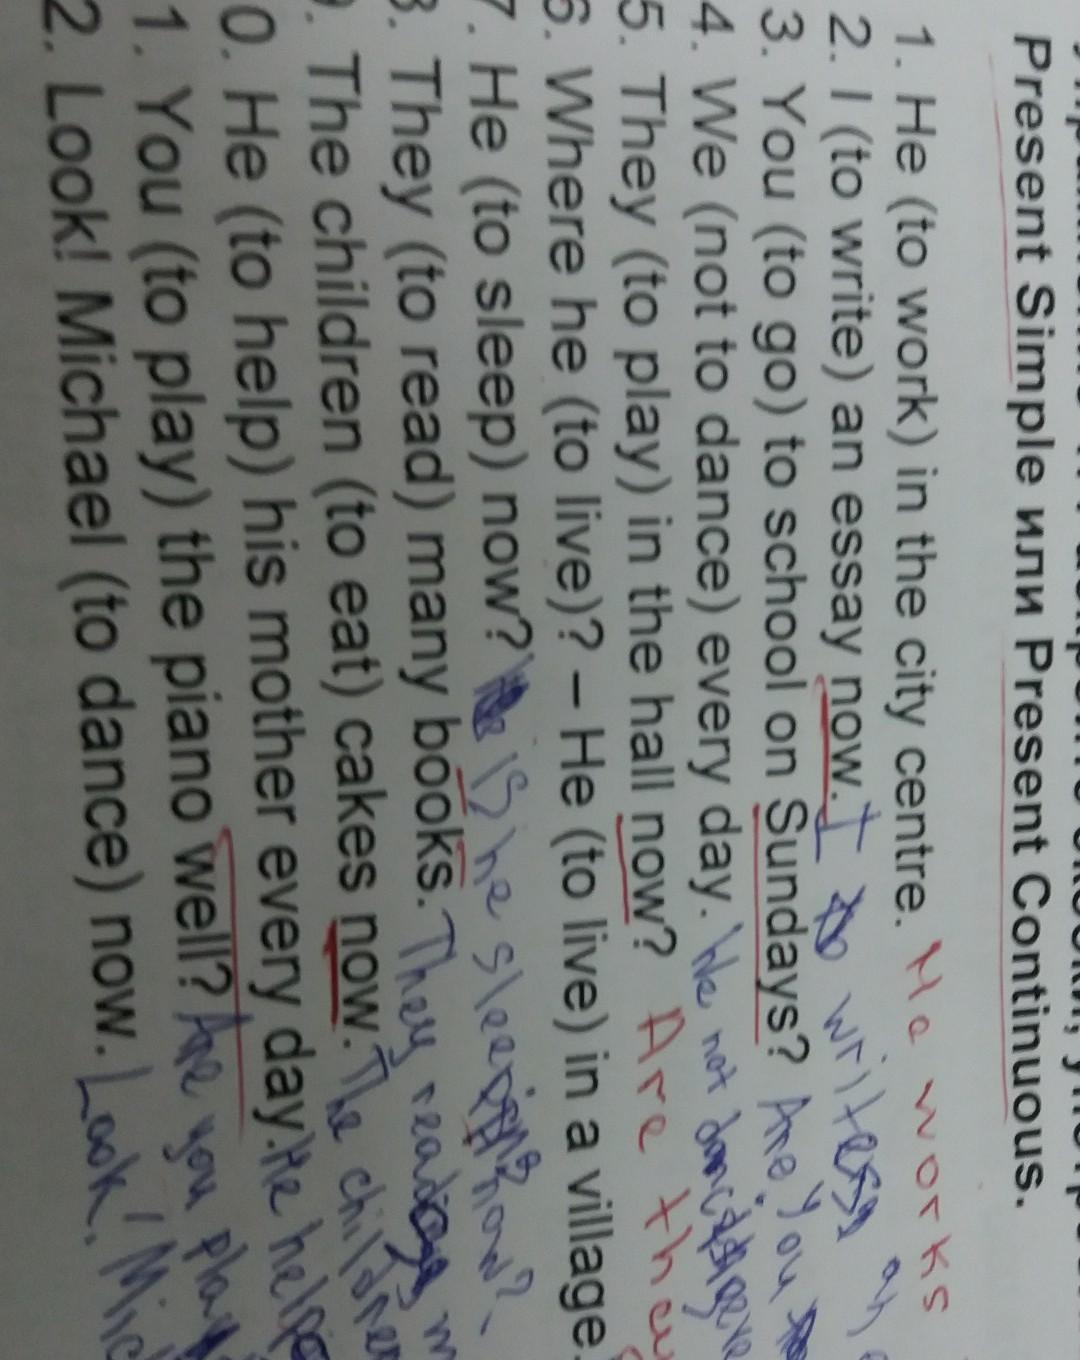 Present Simple или Present Continuous.
1. He (to work) in the city centre. He works
2. I (to write) an essay now. I
3. You (to go) to school on Sundays? Are you
4. We (not to dance) every day. We not
5. They (to play) in the hall now? Are they
6. Where he (to live)? – He (to live) in a village.
7. He (to sleep) now? Is he now?
8. They (to read) many books. They
. The children (to eat) cakes now. The
0. He (to help) his mother every day. He
1. You (to play) the piano well? Are you
2. Look! Michael (to dance) now. Look!